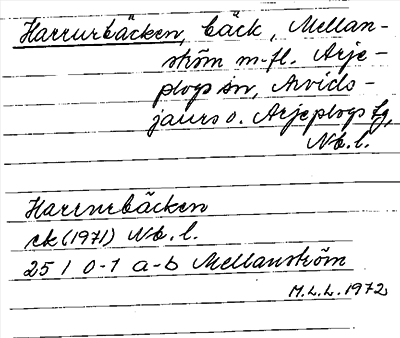 Harrurbäcken, bäck, Mellan-
ström m.fl. Arje-
plogs sn, Arvids-
jaurs o. Arjeplogs tg,
Nb. l.
Harrurbäcken
ek (1971) Nb. l.
25 I 0-1 a-b Mellanström
M.L.L. 1972